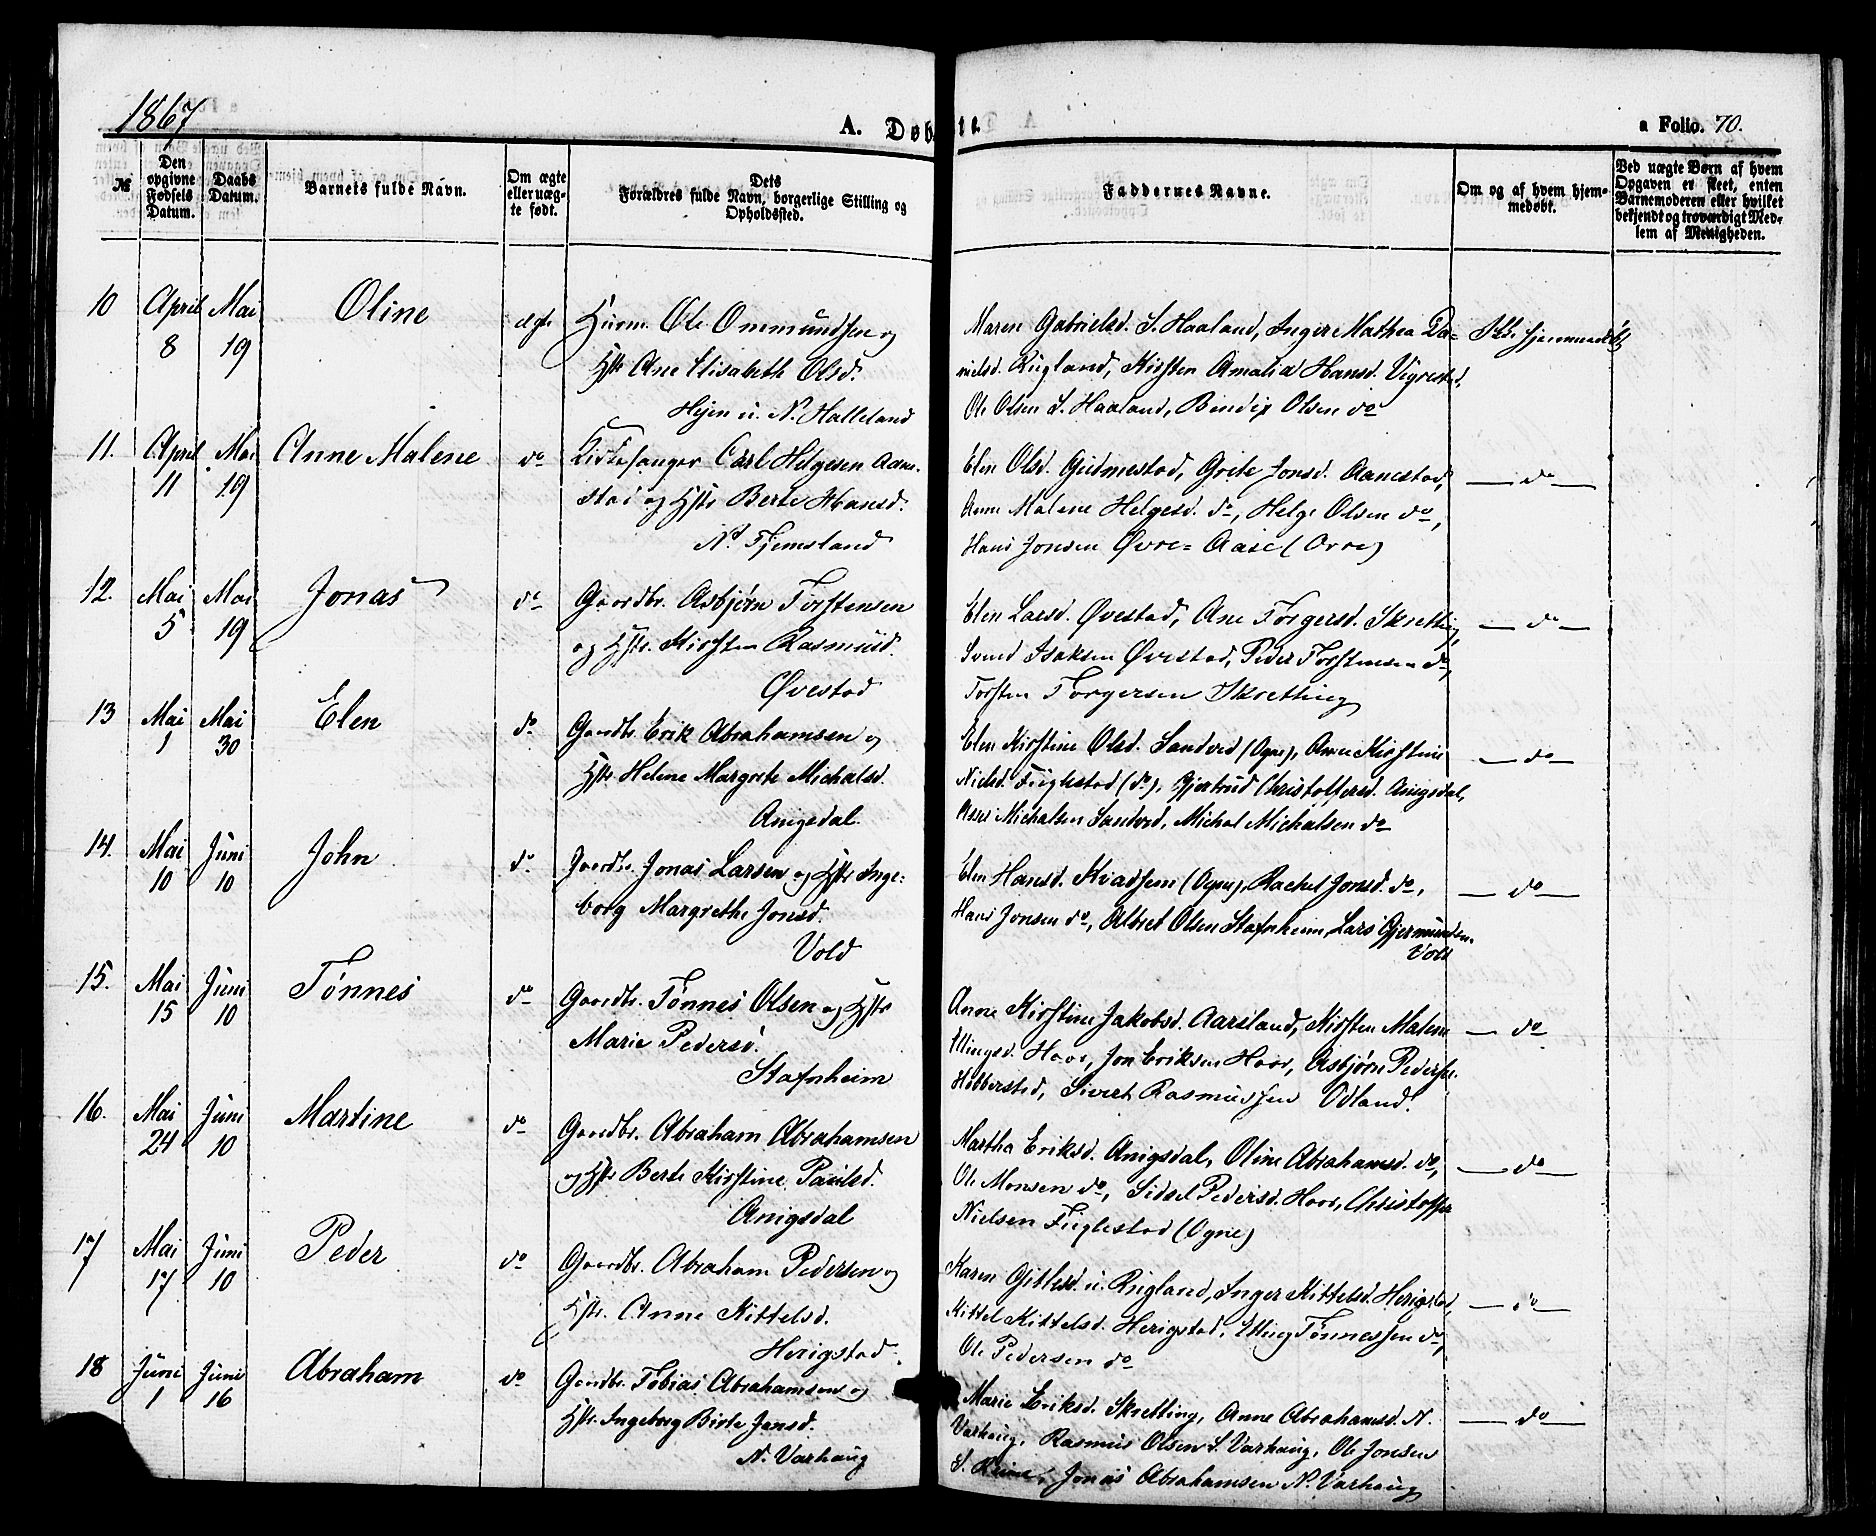 1867
A. Døbte.
a Folio. 70.
№
Den opgivne Fødsels Datum.
Daabs Datum.
Barnets fulde Navn.
Om ægte eller uægte født.
Dets Forældres fulde Navn, borgerlige Stilling og Opholdssted.
Faddernes Navne.
Om og af hvem hjemmedøbt.
Ved uægte Børn af hvem Opgaven er skeet, enten Barnemoderen eller hvilket bekjendt og troværdigt Medlem af Menigheden.
10 April 8 Mai 19 Oline ægte
Huusm. Ole Ommundsen og
Hstr Ane Elisabeth Olsd.
N. Halleland
Maren Gabrielsd. S. Haaland, Inger Mathea Da=
nielsd. Rugland, Kirsten Amalia Hansd. Vigrestad,
Ole Olsen S. Haaland, Bendix Olsen do
Ikke hjemmedøbt
11. April 11 Mai 19 Anne Malene do
Kirkesanger Carl Helgesen Aane-
stad og Hstr Berte Hansd.
Nd. Tjemsland
Elen Olsd. Gudmestad, Grete Jonsd. Aanestad,
Anne Malene Helgesd. do, Helge Olsen do,
Hans Jonsen Øvre=Aase (Orre)
do
12. Mai 5 Mai 19 Jonas do
Gaardbr. Asbjørn Torstensen
og Hstr. Kirsten Rasmusd.
Øvestad
Elen Larsd. Øvestad, Ane Torgersd. Skretting,
Svend Isaksen Øvestad, Peder Torstensen do,
Torsten Torgersen Skretting
do
13 Mai 1 Mai 30 Elen do
Gaardbr. Erik Abrahamsen og
Hstr Helene Margrete Michalsd.
Anigsdal
Elen Kirstine Olsd. Sandved (Ogne), Anne Kirstine
Nielsd. Fuglestad (do), Gjertrud Christoffersd. Anigsdal,
Michalsen Sandved, Michal Michalsen do
do
14. Mai 10 Juni 10 John do
Gaardbr. Jonas Larsen og Hstr Inge=
borg Margrethe Jonsd.
Vold
Elen Hansd. Kvadsem (Ogne), Rachel Jonsd. do,
Hans Jonsen do, Albret Olsen Stafnheim, Lars Gjermundsen
Vold
do
15. Mai 15 Juni 10 Tønnes do
Gaardbr. Tønnes Olsen og Hstr
Marie Pedersd.
Stafnheim
Anne Kirstine Jakobsd. Aarsland, Kirsten Malene
Ellingsd. Haar, Jon Eriksen Haar, Asbjørn Peders.
Hobberstad, Sivert Rasmussen Udland.
do
16. Mai 24 Juni 10 Martine do
Gaardbr. Abraham Abrahamsen
og Hstr Berte Kirstine Paulsd.
Anigsdal
Martha Eriksd. Anigsdal, Oline Abrahamsd. do,
Ole Monsen do, Sidsel Pedersd. Haar, Christoffer
Nielsen Fuglestad (Ogne)
do
17 Mai 17 Juni 10 Peder do
Gaardbr. Abraham Pedersen og
Hstr. Anne Kittelsd.
Herigstad
Karen Gitlesd. Rugland, Inger Kittelsd. Herigstad,
Kittel Kittelsd. Herigstad, Elling Tønnessen do,
Ole Pedersen do
do
18 Juni 1 Juni 16 Abraham do
Gaardbr. Tobias Abrahamsen og
Hstr. Ingeborg Birte Jonsd.
N. Varhaug
Marie Eriksd. Skretting, Anne Abrahamsd. N.
Varhaug, Rasmus Olsen S. Varhaug, Ole Jonsen
S. Jonas Abrahamsen N. Varhaug
do